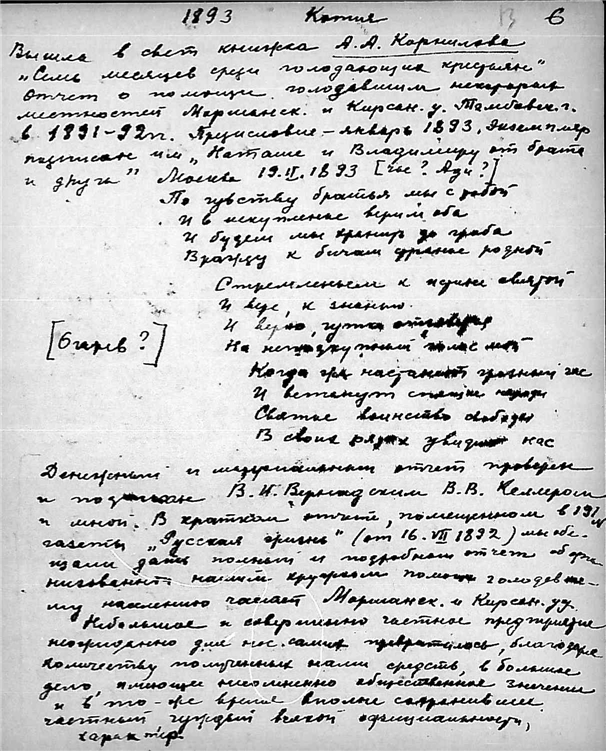 1893 Копия 6
Вышла в свет книжка А.А. Корнилова
„Семь месяцев среди голодающих крестьян"
Отчет о помощи голодавшим некоторых
местностей Моршанск. и Кирсан. у. Тамбовск. г.
в 1891-92 гг. Предисловие - январь 1893. Экземпляр
подписан им „Наташе и Владимиру от брата
и друга" Москва 19.VI.1893 [чье? Ади?]
По чувству братья мы с тобой
И в искупленье верим оба
И будем мы хранить до гроба
Вражду к бичам страны родной
Стремленьем к истине святой
И вус, к знанью.
И верю, чутко отзовется
На неподкупный голос мой
Когда же настанет грозный час
И встанут спящие народы
Святое воинство свободы
В своих рядах увидит нас
[Огарев?]
Денежный и материальный отчет проверен
и подписан В.И. Вернадским В.В. Келлером
и мной. В кратком отчете, помещенном в 191 №
газеты „Русская жизнь" (от 16.VII 1892) мы обе-
щали дать полный и подробный отчет об орга-
низованной нашим кружком помощи голодавше-
му населению частей Моршанск. и Кирсан. уу.
Небольшое и совершенно частное предприятие
неожиданно для нас самих превратилось, благодаря
количеству полученных нами средств, в большое
дело, имеющее несомненно общественное значение
и в то-же время вполне сохранившее
частный чуждый всякой официальности,
характер